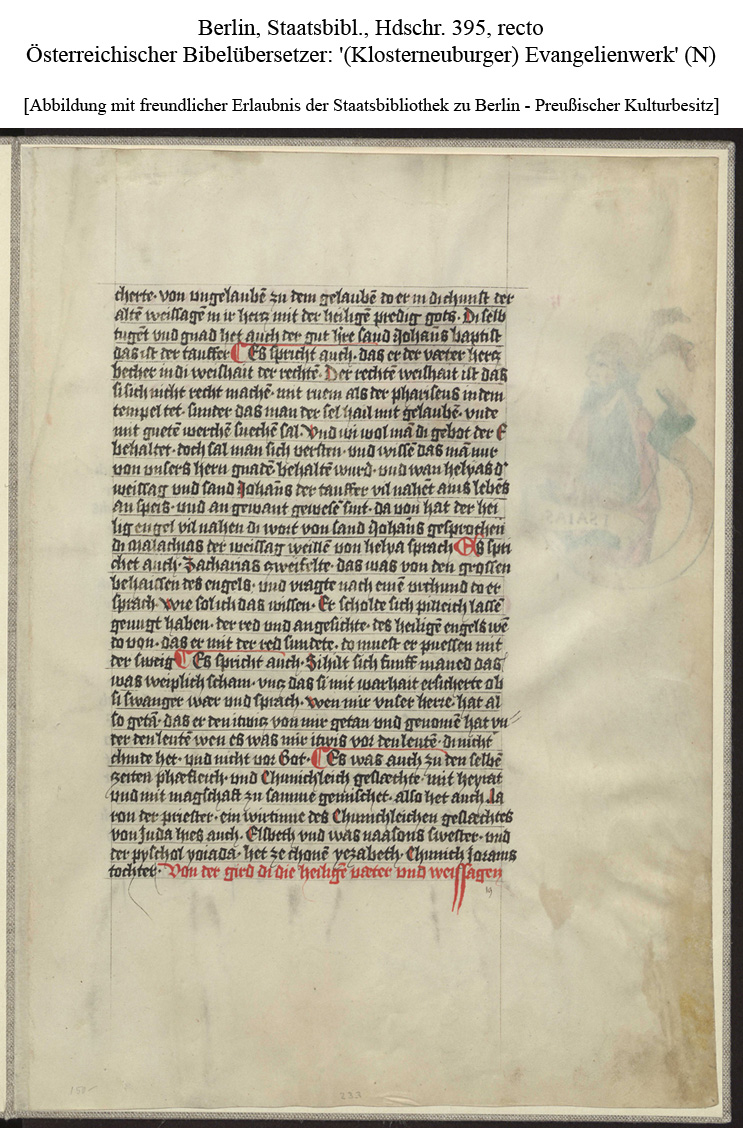 Berlin, Staatsbibl., Hdschr. 395, recto
Österreichischer Bibelübersetzer: '(Klosterneuburger) Evangelienwerk' (N)
[Abbildung mit freundlicher Erlaubnis der Staatsbibliothek zu Berlin - Preußischer Kulturbesitz]
cherte· von ungelaubē zu dem gelaubē do er in di chunft der
altē weissagē in ir hertz mit der heiligē predig gots· Di selb
tugēt vnd gnad het auch der gut h're sand Johañs baptist
das ist der tauffer ¶ Es spricht auch· das er der væter hertz
becher in di weishait der rechtē· Der rechtē weishait ist das
si sich nicht recht machē· mit ruem als der phariseus in dem
tempel tet· sunder das man der sel hail mit gelaubē· vnde
mit guetē werchē suechē sal· Vnd wi wol mā di gebot der E
behaltet· doch sal man sich versten· vnd wissē das mā nur
von vnsers hern gnadē behaltē wurd· vnd wan helyas d'
weissag vnd sand Johañs der tauffer vil nahēt ains lebēs
an speis· vnd an gewant gewesē sint· da von hat der hei
lig engel vil nahen di wort von sand Johañs gesprochen
di malachias der weissag weilē von helya sprach ¶ Es spri
chet auch· Zacharias zweifelte· das was von den grossen
behaissen des engels· vnd vragte nach einē vrchund do er
sprach· Wie sol ich das wissen· Er scholde sich pilleich lassē
genugt haben· der red vnd angesichte· des heiligē engels wē
do von· das er mit der red sundete· do muest er puessen mit
der sweig ¶ Es spricht auch· Si hilt sich funff maned das
was weiplich scham· vntz das si mit warhait ersicherte ob
si swanger wær vnd sprach· Wen mir vnser herre hat al
so getā· das er den itwitz von mir getan vnd genomē hat vn
der den leutē wen es was mir itwis vor den leutē· di nicht
chinde het· vnd nicht vor Got· ¶ Es was auch zu den selbē
zeiten phæfleich· vnd Chunichleich geslæchte· mit heyrat
vnd mit magschaft zu samme gemischet· also het auch Ja
ron der priester· ein wirtinne des Chunichleichen geslæchtes
von Juda hies auch· Elsbeth vnd was naasons swester· vnd
der pyschol yoiada· het ze chonē yezabeth· Chunich Jorams
tochter· Von der gird di die heiligē væter vnd weissagen
233